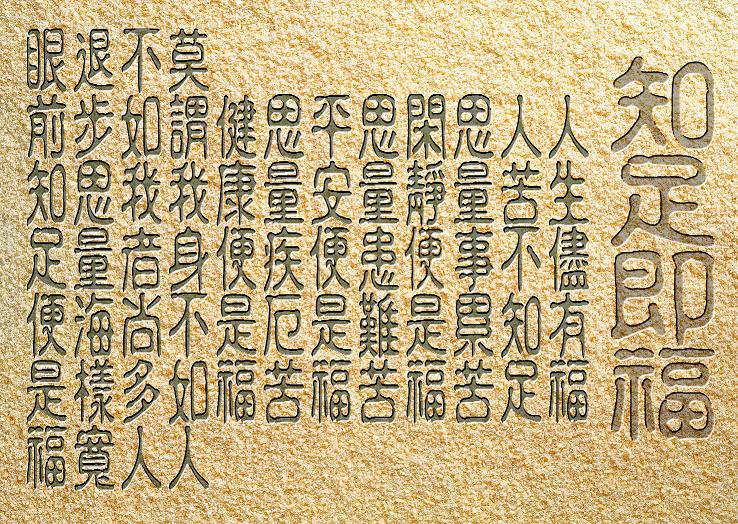 知足即福
人生儘有福
人苦不知足
思量事累苦
閑靜便是福
思量患難苦
平安便是福
思量疾厄苦
健康便是福
莫謂我身不如人
不如我者尚多人
退步思量海樣寬
眼前知足便是福